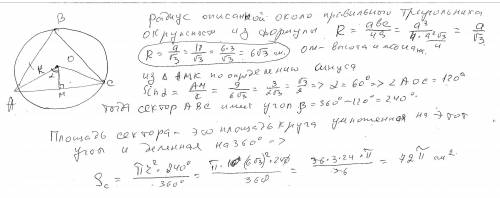 B
Радиус описанной около правильного треугольника
окружности из формулы R = abc/4S = a³/(4·a²√3) = a/√3
R = a/√3 = 18/√3 = 6·3/√3 = 6√3 см.
ом - высота и медиана, и
из Δ AMK по определению синуса
Sin α = AM/R = 9/6√3 = 3/2√3 = √3/2 => α = 60° => ∠AOC = 120°
O
R
α
A
M
C
тогда сектор ABC имеет угол β = 360° - 120° = 240°.
Площадь сектора - это площадь круга умноженная на этот
угол и деленная на 360° =>
Sc = πr²·240°/360° = π·(6√3)²·240/360 = 36·3·24·π/36 = 72π см².